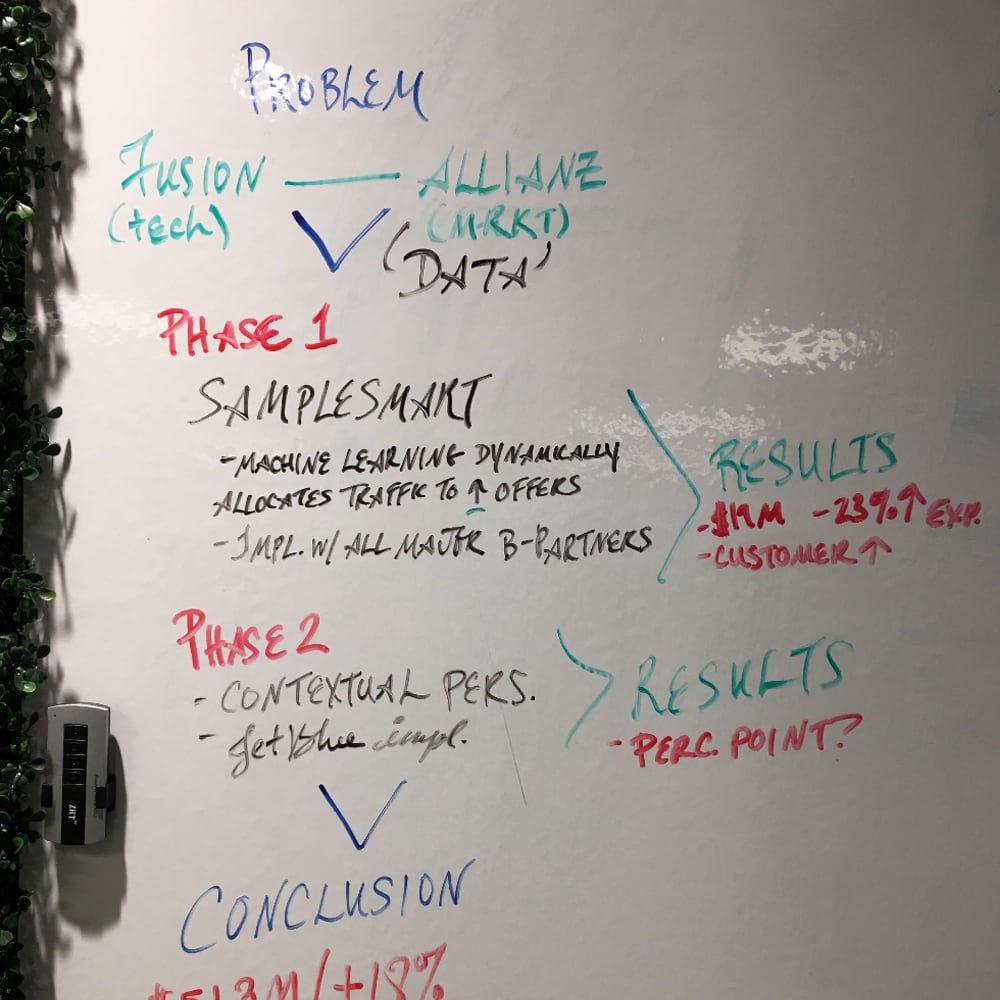 PROBLEM
FUSION — ALLIANZ
(tech) (MRKT)
(DATA)
PHASE 1
SAMPLESMART
- MACHINE LEARNING DYNAMICALLY
ALLOCATES TRAFFIC TO ↑ OFFERS
- IMPL. W/ ALL MAJOR B-PARTNERS
RESULTS
- $19M - 23% ↑ EXP.
- CUSTOMER ↑
PHASE 2
- CONTEXTUAL PERS.
- jetblue impl.
RESULTS
- PERC. POINT?
CONCLUSION
/+18%